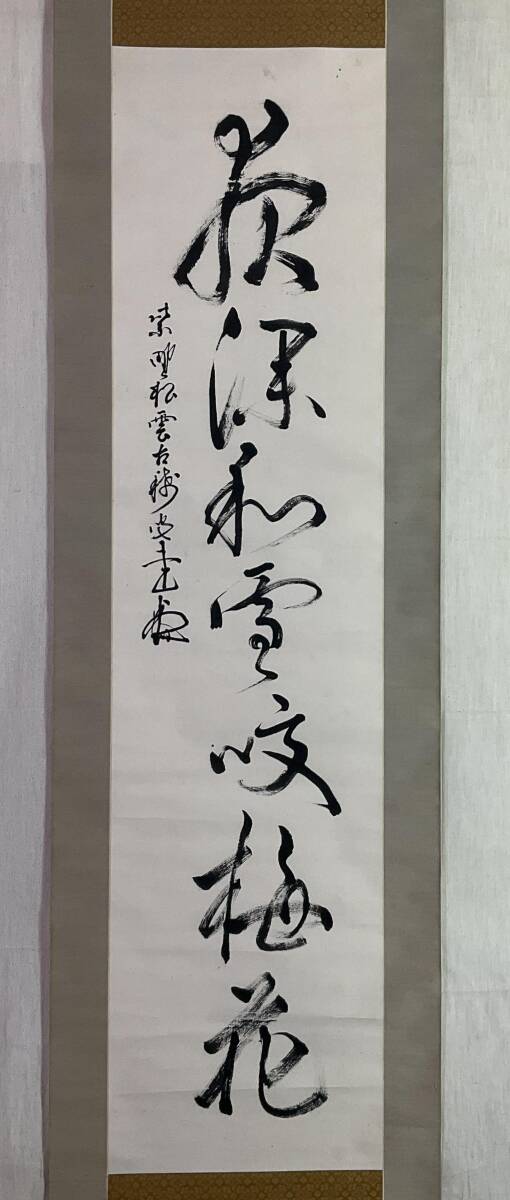 夜深和雪咬梅花
紫野松雲古稀閑栖書